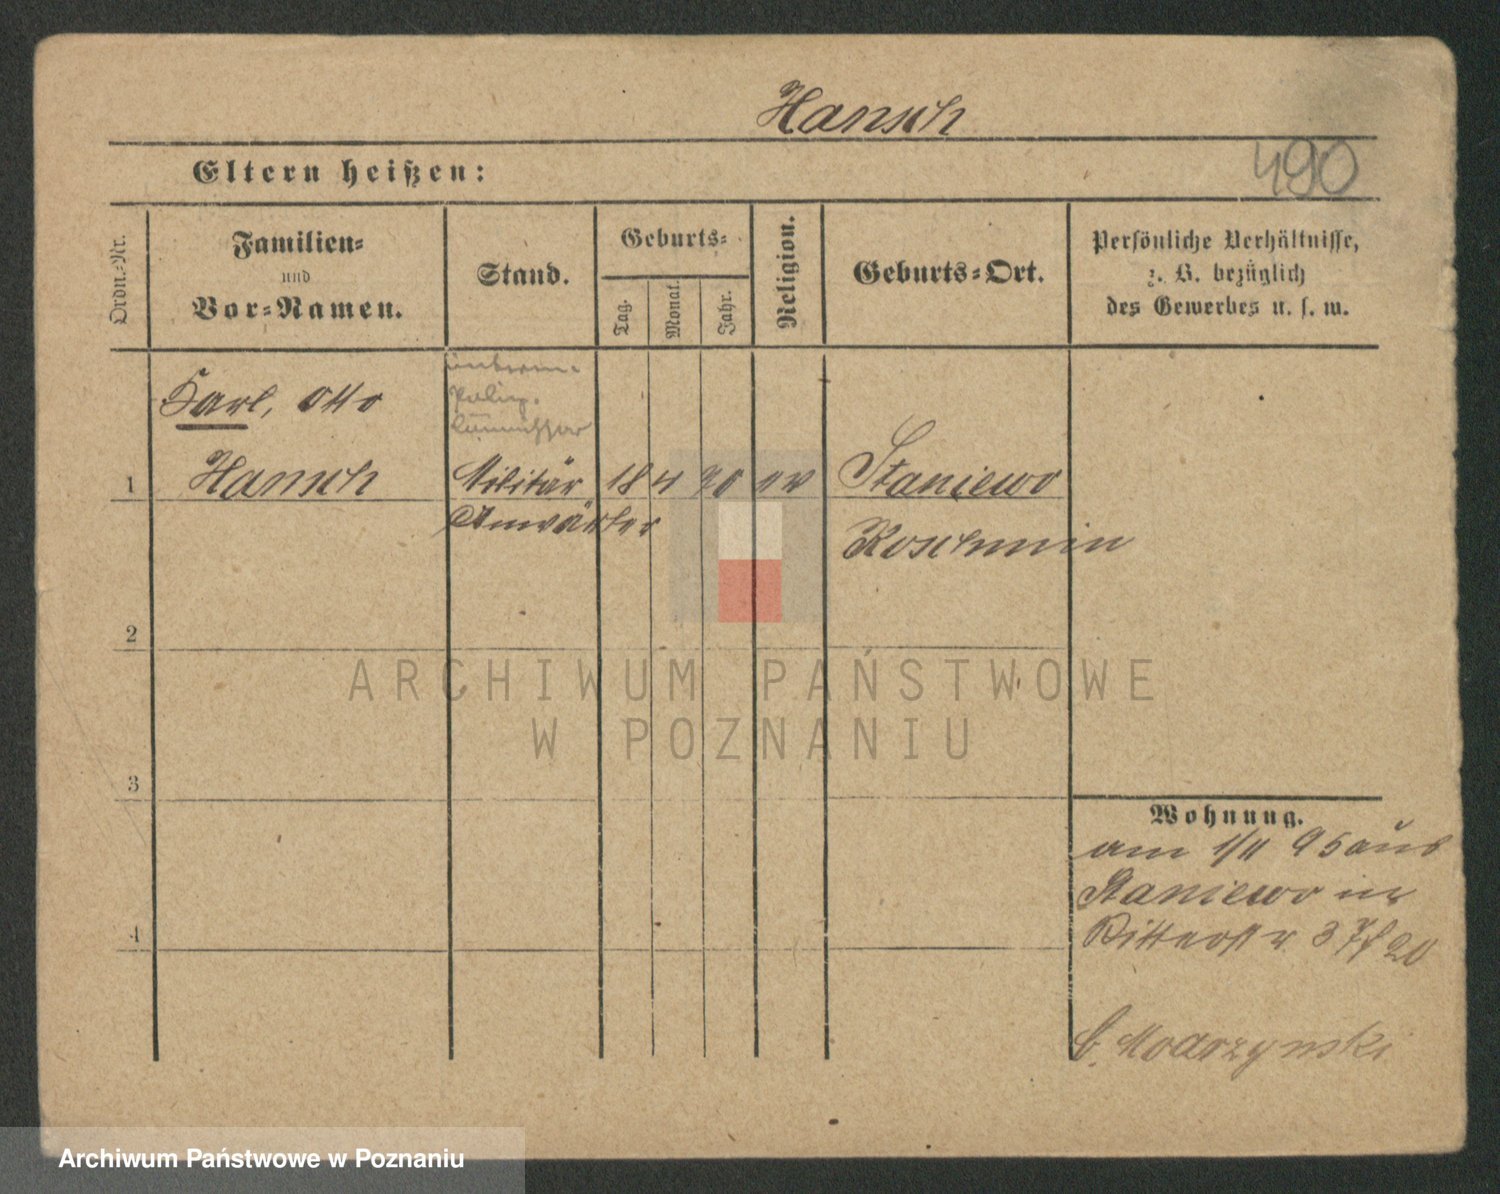 Hansch
Eltern heißen:
490
Ordn.-Nr.
Familien-
und
Vor-Namen.
Stand.
Geburts-
Tag.
Monat.
Jahr.
Religion.
Geburts-Ort.
Persönliche Verhältnisse,
z. B. bezüglich
des Gewerbes u. s. w.
Karl, Otto
1
Hansch
Militär
Anwärter
18 4 70 ev
Staniewo
Koschmin
2
3
4
Wohnung.
am 1/11 95 aus
Staniewo in
Ritterstr. 37 f 20
b.
ARCHIWUM PAŃSTWOWE
W POZNANIU
Archiwum Państwowe w Poznaniu